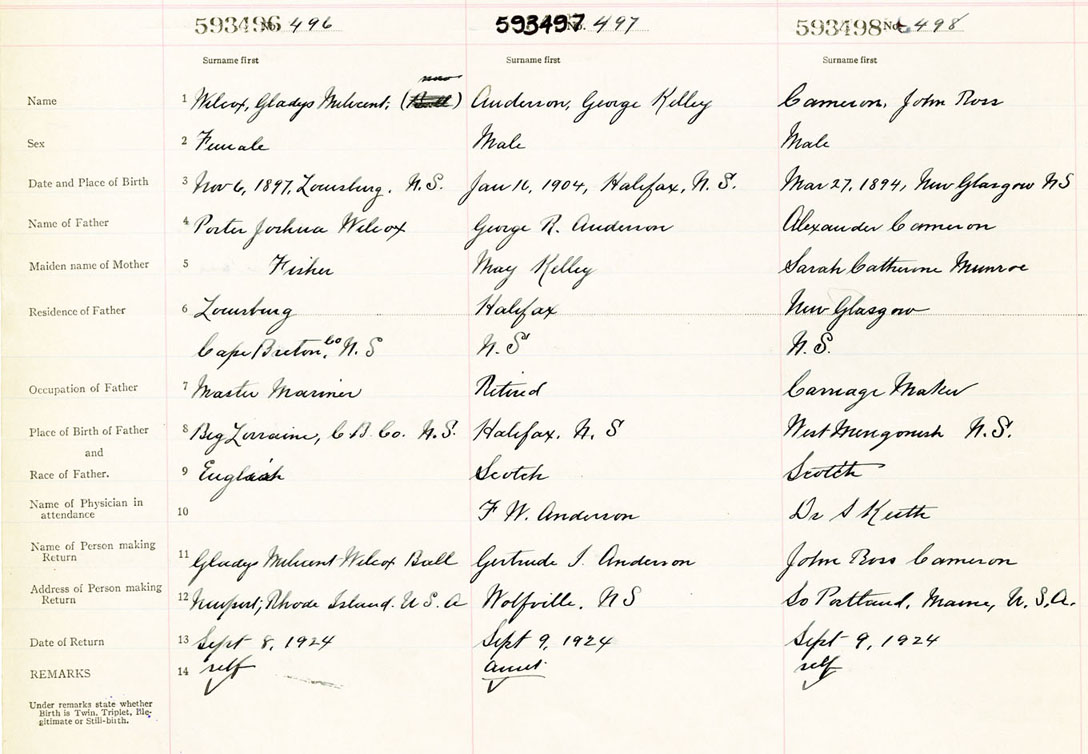 593496 No. 496 593497 No. 497 593498 No. 498
Surname first Surname first Surname first
Name 1 Wilcox, Gladys Milvcent, ( ) Anderson, George Kelley Cameron, John Ross
Sex 2 Female Male Male
Date and Place of Birth 3 Nov 6, 1897, Louisburg, N.S. Jan 16, 1904, Halifax, N.S. Mar 27, 1894, New Glasgow NS
Name of Father 4 Porter Joshua Wilcox George R. Anderson Alexander Cameron
Maiden name of Mother 5 Fisher May Kelley Sarah Catherine Munroe
Residence of Father 6 Louisburg Halifax New Glasgow
Cape Breton, Co N.S N.S N.S.
Occupation of Father 7 Master Mariner Retired Carriage Maker
Place of Birth of Father 8 Big Lorraine, C.B. Co. N.S. Halifax, N, S West N.S.
and
Race of Father. 9 English Scotch Scotch
Name of Physician in
attendance 10 F W. Anderson Dr S Keith
Name of Person making
Return 11 Gladys Milvcent Wilcox Ball Gertrude I. Anderson John Ross Cameron
Address of Person making
Return 12 Newport; Rhode Island. U.S.A Wolfville, NS So Portland, Maine, U.S.A.
Date of Return 13 Sept 8, 1924 Sept 9, 1924 Sept 9, 1924
REMARKS 14 self aunt self
Under remarks state whether
Birth is Twin, Triplet, Ille-
gitimate or Still-birth.